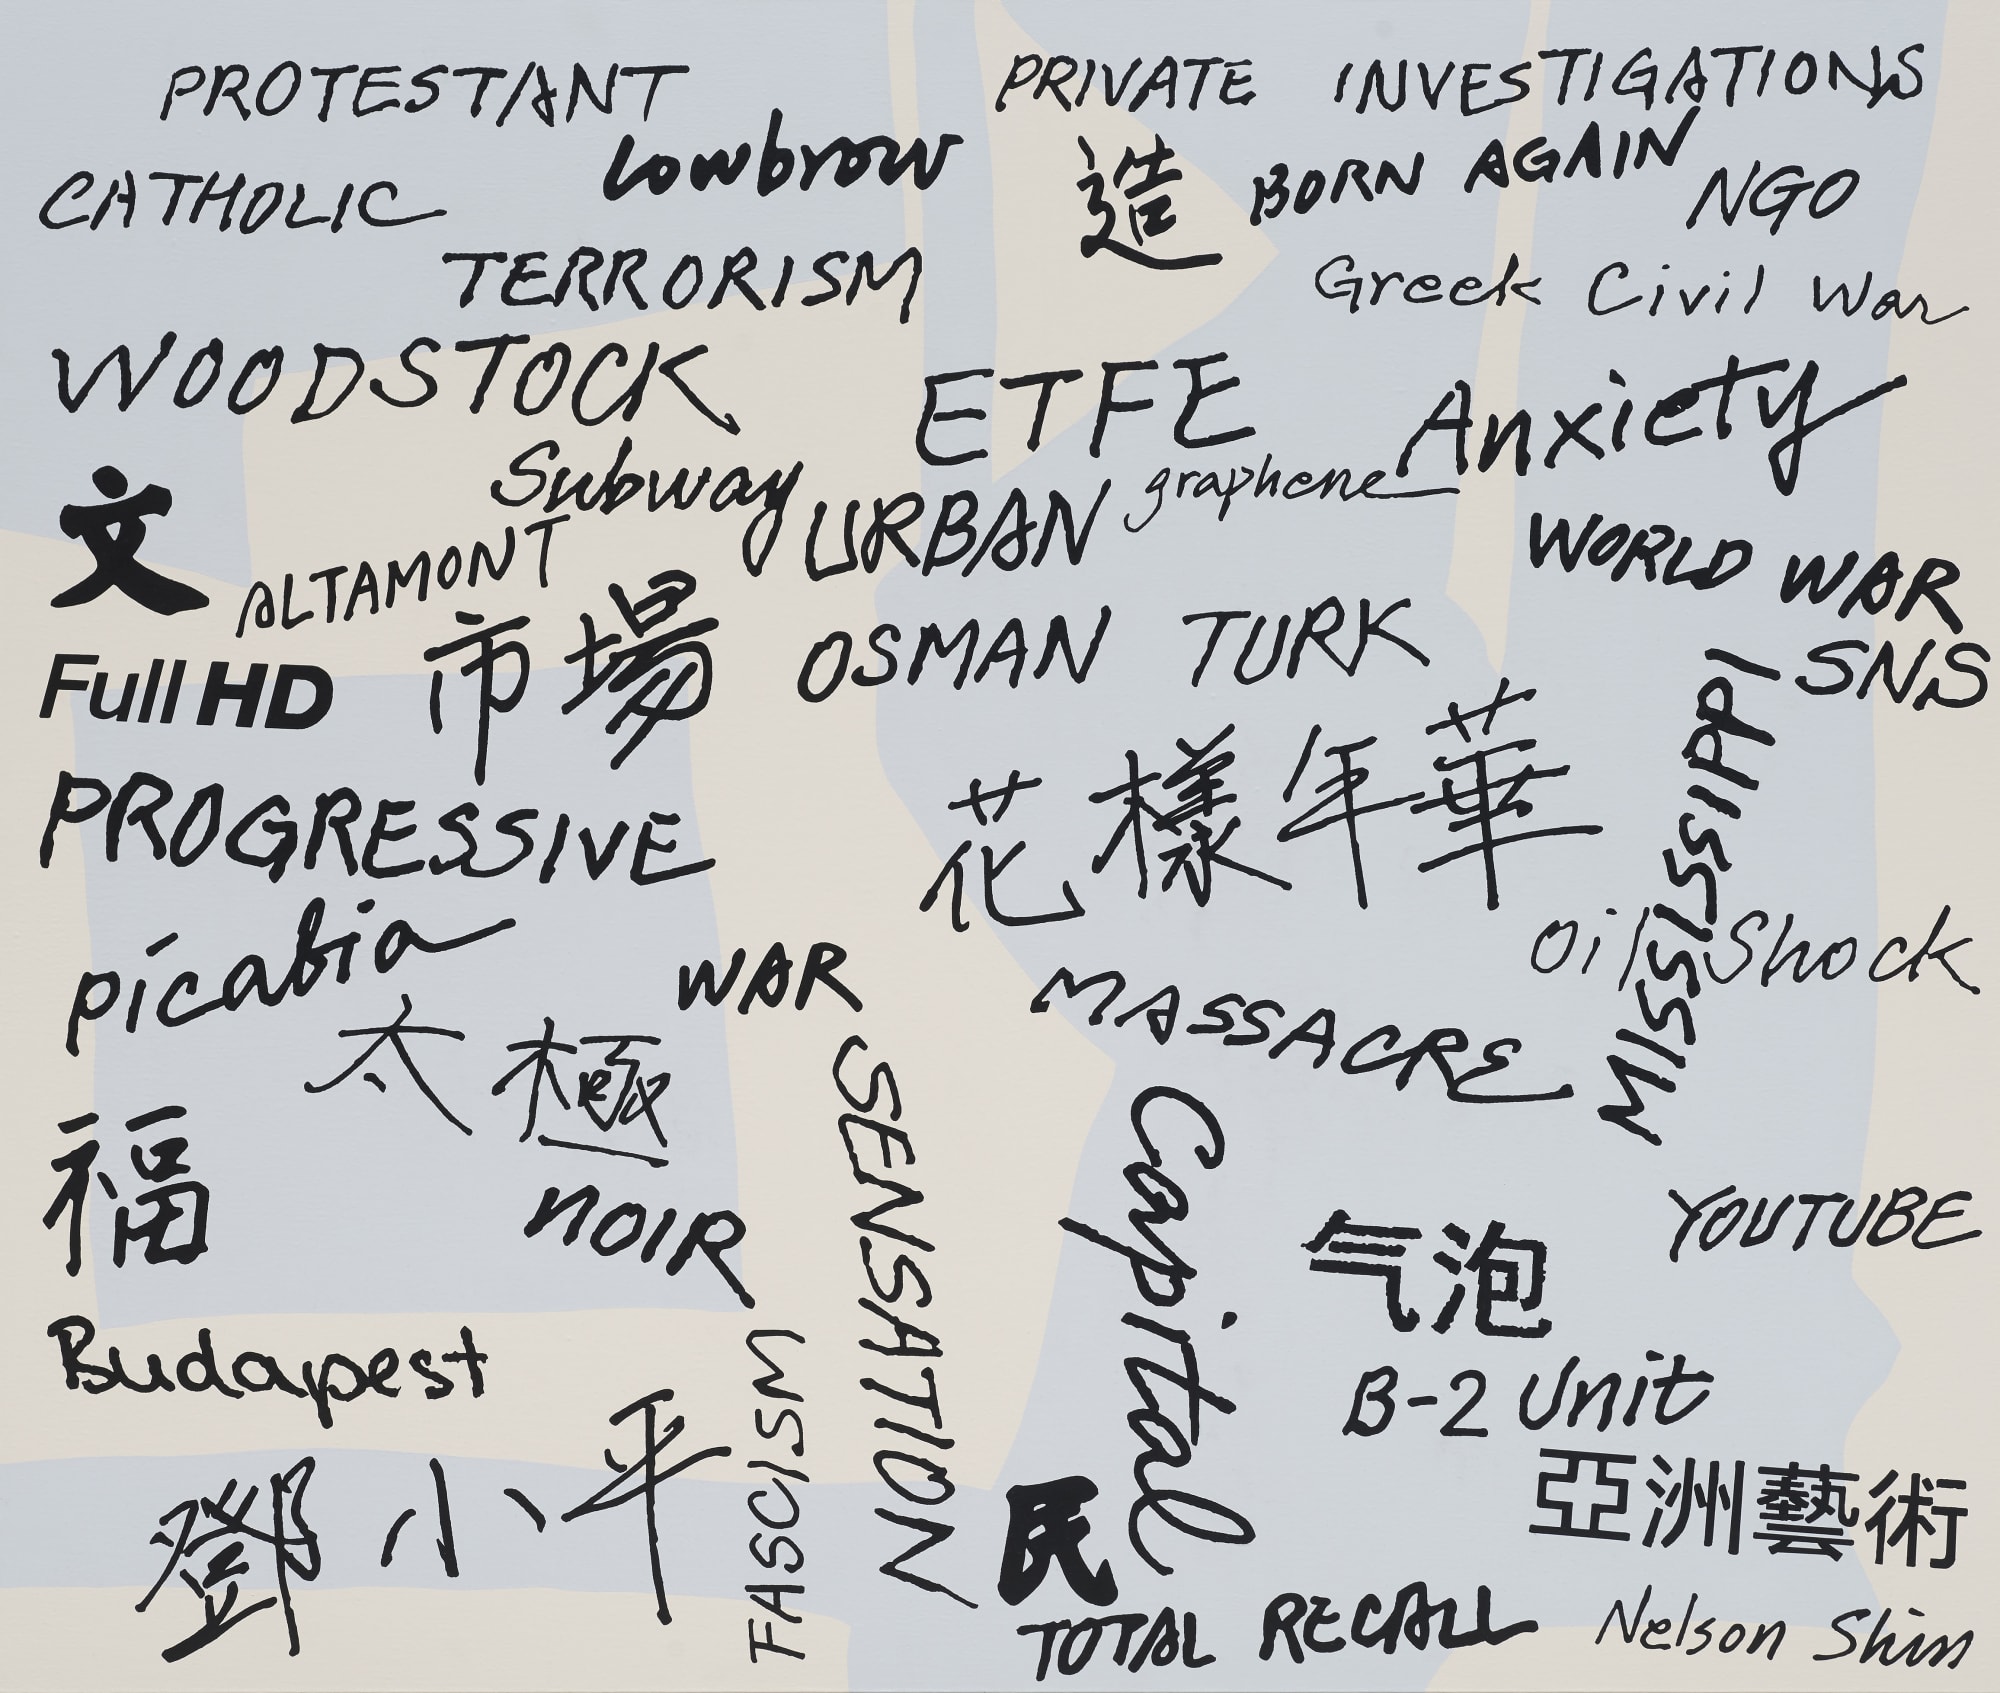 PROTESTANT
PRIVATE INVESTIGATIONS
Lowbrow
CATHOLIC
造
BORN AGAIN
NGO
TERRORISM
Greek Civil War
WOODSTOCK
ETFE
Anxiety
Subway
graphene
文
URBAN
ALTAMONT
WORLD WAR
市場
OSMAN TURK
SNS
Full HD
MISSISSIPPI
花樣年華
PROGRESSIVE
picabia
Oil Shock
WAR
MASSACRE
太極
SENSATION
Capital
福
NOIR
YOUTUBE
气泡
Budapest
FASCISM
B-2 Unit
鄧小平
亞洲藝術
民
TOTAL RECALL
Nelson Shin